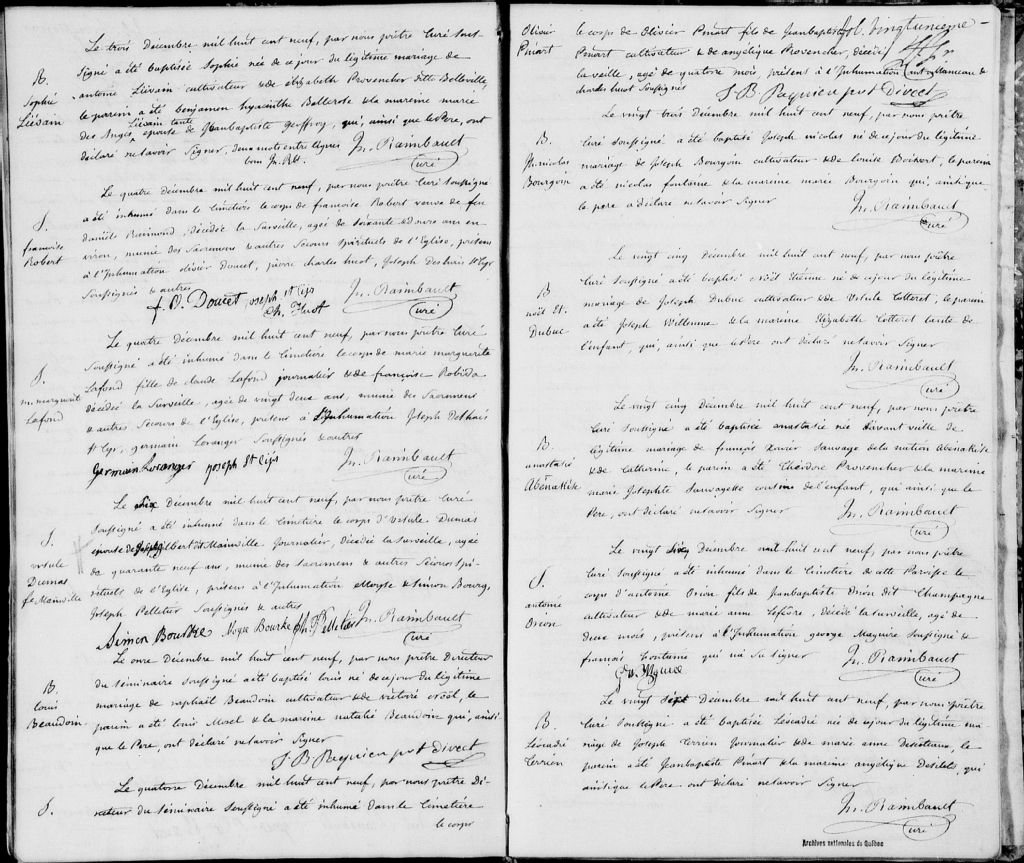 Le trois Décembre mil huit cent neuf, par nous prêtre Curé Sous-
B.
Sophie
Liésain
Signé a été baptisée Sophie née de ce jour du légitime mariage de
antoine Liésain cultivateur & de élizabeth Provencher ditte Belleville,
le parein a été benjamen hyacinthe Bellerose & la mareine marie
des Anges Liésain tante, épouse de Jeanbaptiste Geoffroy, qui, ainsi que le Pere, ont
déclaré ne savoir Signer, deux mots entre lignes
bon Jn. Rbt.
Jn. Raimbault
Curé
Le quatre Décembre mil huit cent neuf, par nous prêtre Curé Soussigné
S.
françoise
Robert
a été inhumé dans le Cimetière le corps de françoise Robert veuve de feu
Raimond, décédée la Surveille, agée de Soixante & douze ans en
viron, munie des Sacremens & autres Secours Spirituels de l'Eglise, présens
à l'Inhumation olivier Doucet, pierre charles huot, Joseph St Cyr
Soussignés & autres
f. O. Doucet
Joseph St Cyr
Ch. Huot
Jn. Raimbault
Curé
Le quatre Décembre mil huit cent neuf, par nous prêtre Curé
S.
m. marguerite
Lafond
Soussigné a été inhumé dans le Cimetière le corps de marie marguerite
Lafond fille de claude Lafond journalier & de françoise Robida
décédée la Surveille, agée de vingt deux ans, munie des Sacremens
& autres Secours de l'Eglise, présens à l'Inhumation Joseph Deshaies
St Cyr, germain Loranger Soussignés & autres
Germain Loranger
Joseph St Cyr
Jn. Raimbault
Curé
Le Six Décembre mil huit cent neuf, par nous prêtre Curé
S.
ursule
Dumas
fe. Mainville
Soussigné a été inhumé dans le Cimetière le corps d'Ursule Dumas
épouse de Joseph Mainville Journalier, décédée la Surveille, agée
de quarante neuf ans, munie des Sacremens & autres Secours Spi-
rituels de l'Eglise, présens à l'Inhumation Moyse & Simon Bourg,
Joseph Pelletier Soussignés & autres
Simon Bourke
Moyse Bourke
Jh. Pelletier
Jn. Raimbault
Curé
Le onze Décembre mil huit cent neuf, par nous prêtre Directeur
B.
Louis
Beaudoin
du Séminaire Soussigné a été baptisé Louis né de ce jour du légitime
mariage de raphaël Beaudoin cultivateur & de victoire Noël, le
parein a été Louis Morel & la mareine natalie Beaudoin qui, ainsi
que le Pere, ont déclaré ne savoir Signer
J. B. Paquien pst Direct
Le quatorze Décembre mil huit cent neuf, par nous prêtre Di-
S.
recteur du Séminaire Soussigné a été inhumé dans le Cimetière
le corps
Olivier
Pinart
le corps de Olivier Pinart fils de Jeanbaptiste
Pinart cultivateur & de angélique Provencher, décédé
la veille, agé de quatre mois, présens à l'Inhumation &
charles huot Soussignés
Vingtunieme
J. B. Paquien pst Direct
Le vingt trois Décembre mil huit cent neuf, par nous prêtre
B.
Jh. nicolas
Bourgoin
Curé Soussigné a été baptisé Joseph nicolas né de ce jour du légitime
mariage de Joseph Bourgoin cultivateur & de Louise Boisvert, le parein
a été nicolas fontaine & la mareine marie Bourgoin qui, ainsi que
le pere a déclaré ne savoir Signer
Jn. Raimbault
Curé
Le vingt cinq Décembre mil huit cent neuf, par nous prêtre
B
noël Et.
Dubuc
Curé Soussigné a été baptisé noël Etienne né de ce jour du légitime
mariage de Joseph Dubuc cultivateur & de Ursule Cotteret, le parein
a été Joseph & la mareine Elizabeth Cotteret tante de
l'enfant, qui, ainsi que le Pere ont déclaré ne savoir Signer
Jn. Raimbault
Curé
Le vingt cinq Décembre mil huit cent neuf, par nous prêtre
B.
anastasie
Abénakise
Curé Soussigné a été baptisée anastasie née d'avant veille de
légitime mariage de françois Xavier Sauvage de la nation Abénakise
& de Catherine, le parein a été Théodore Provencher & la mareine
marie Josephte Sauvagesse cousine de l'enfant, qui ainsi que le
Pere, ont déclaré ne savoir Signer
Jn. Raimbault
Curé
Le vingt Six Décembre mil huit cent neuf, par nous prêtre
S.
antoine
Orion
Curé Soussigné a été inhumé dans le Cimetière de cette Paroisse le
corps d'antoine Orion fils de Jeanbaptiste Orion dit Champagne
cultivateur & de marie anne Lefebvre, décédé la Surveille, agé de
deux mois, présens à l'Inhumation george Maguire Soussigné &
françois fontaine qui n'a Su signer
Jn. Raimbault
Curé
Le vingt Sept Décembre mil huit cent neuf, par nous prêtre
B.
Léocadie
Terrien
Curé Soussigné a été baptisée Léocadie née de ce jour du légitime ma
riage de Joseph Terrien Journalier & de marie anne Desroteaux, le
parein a été Jeanbaptiste Pinart & la mareine angélique Desilets, qui
ainsi que le Pere ont déclaré ne savoir Signer
Jn. Raimbault
Curé
Archives nationales du Québec